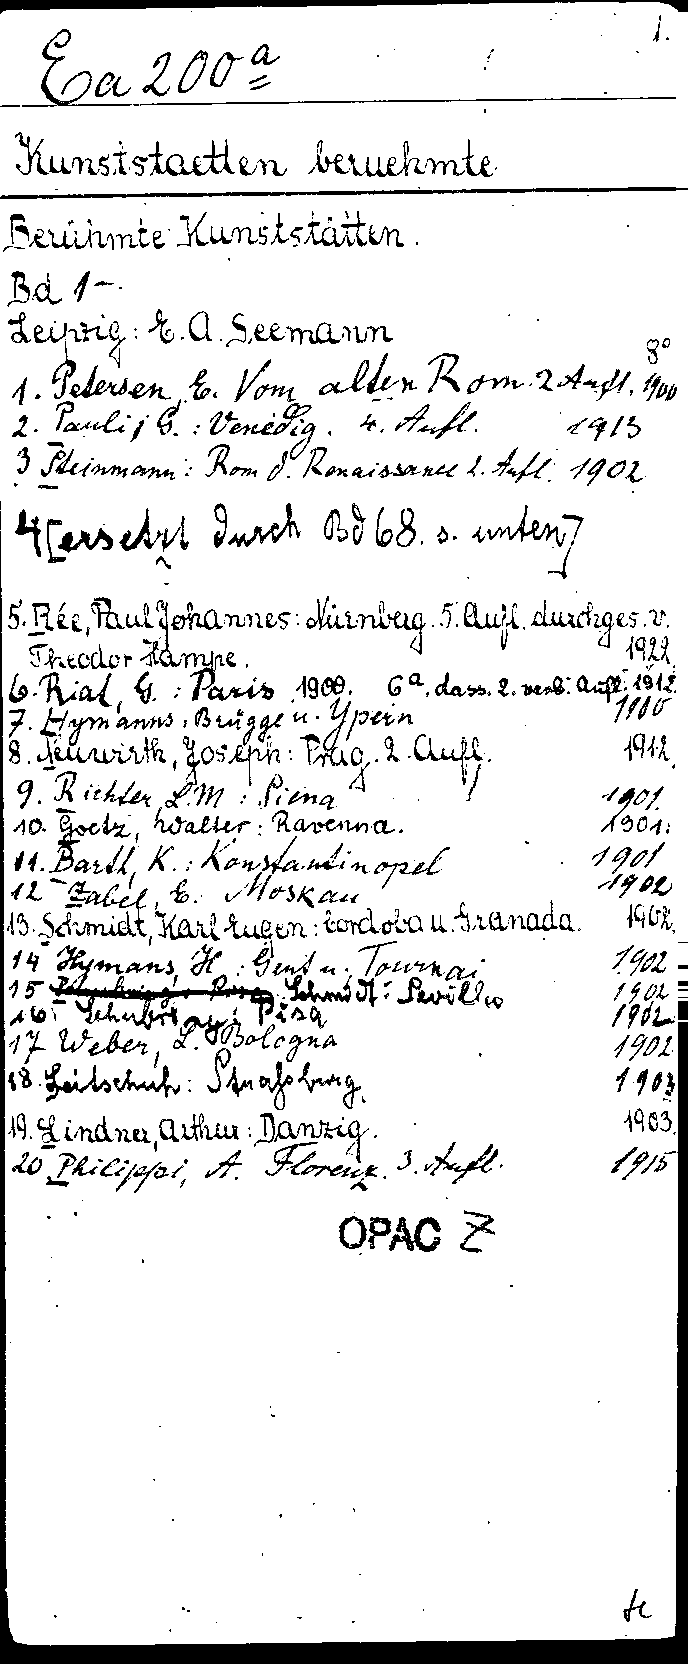 1.
Ea 200a
Kunststaetten beruehmte
Berühmte Kunststätten.
Bd 1-.
Leipzig: E. A. Seemann
8°
1. Petersen, E. Vom alten Rom. 2 Aufl. 1900
2. Pauli, G.: Venedig. 4. Aufl. 1913
3 Steinmann: Rom d. Renaissance 2. Aufl. 1902
4 [ersetzt durch Bd 68. s. unten]
5. Rée, Paul Johannes: Nürnberg. 5. Aufl. durchges. v.
Theodor Hampe. 1922.
6. Riat, G.: Paris 1900. 6a. dass. 2. verb. Aufl. 1912.
7. Hymanns: Brügge u. Ypern 1900
8. Neuwirth, Joseph: Prag. 2. Aufl. 1912.
9. Richter, L.M: Siena 1901.
10. Goetz, Walter: Ravenna. 1901.
11. Barth, K.: Konstantinopel 1901
12 Zabel, E. Moskau 1902
13. Schmidt, Karl Eugen: Cordoba u. Granada. 1902.
14 Hymans, H: Gent u. Tournai 1902
15 Schmidt: Sevilla 1902
16: Schubring: Pisa 1902
17 Weber, L. Bologna 1902
18. Leitschuh: Straßburg 1903
19. Lindner, Arthur: Danzig. 1903.
20 Philippi, A. Florenz. 3. Aufl. 1915
OPAC Z